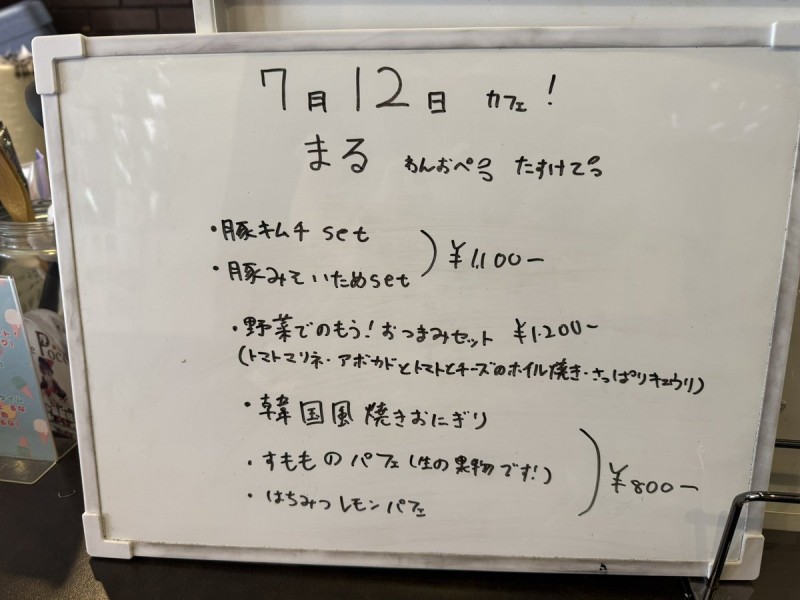 7月12日 カフェ!
まる わんおぺ たすけてっ
・豚キムチ set
・豚みそいためset
¥1,100-
・野菜でのもう!おつまみセット ¥1,200-
(トマトマリネ・アボカドとトマトとチーズのホイル焼き・さっぱりキュウリ)
・韓国風焼きおにぎり
・すもものパフェ(生の果物です!)
・はちみつレモンパフェ
¥800-